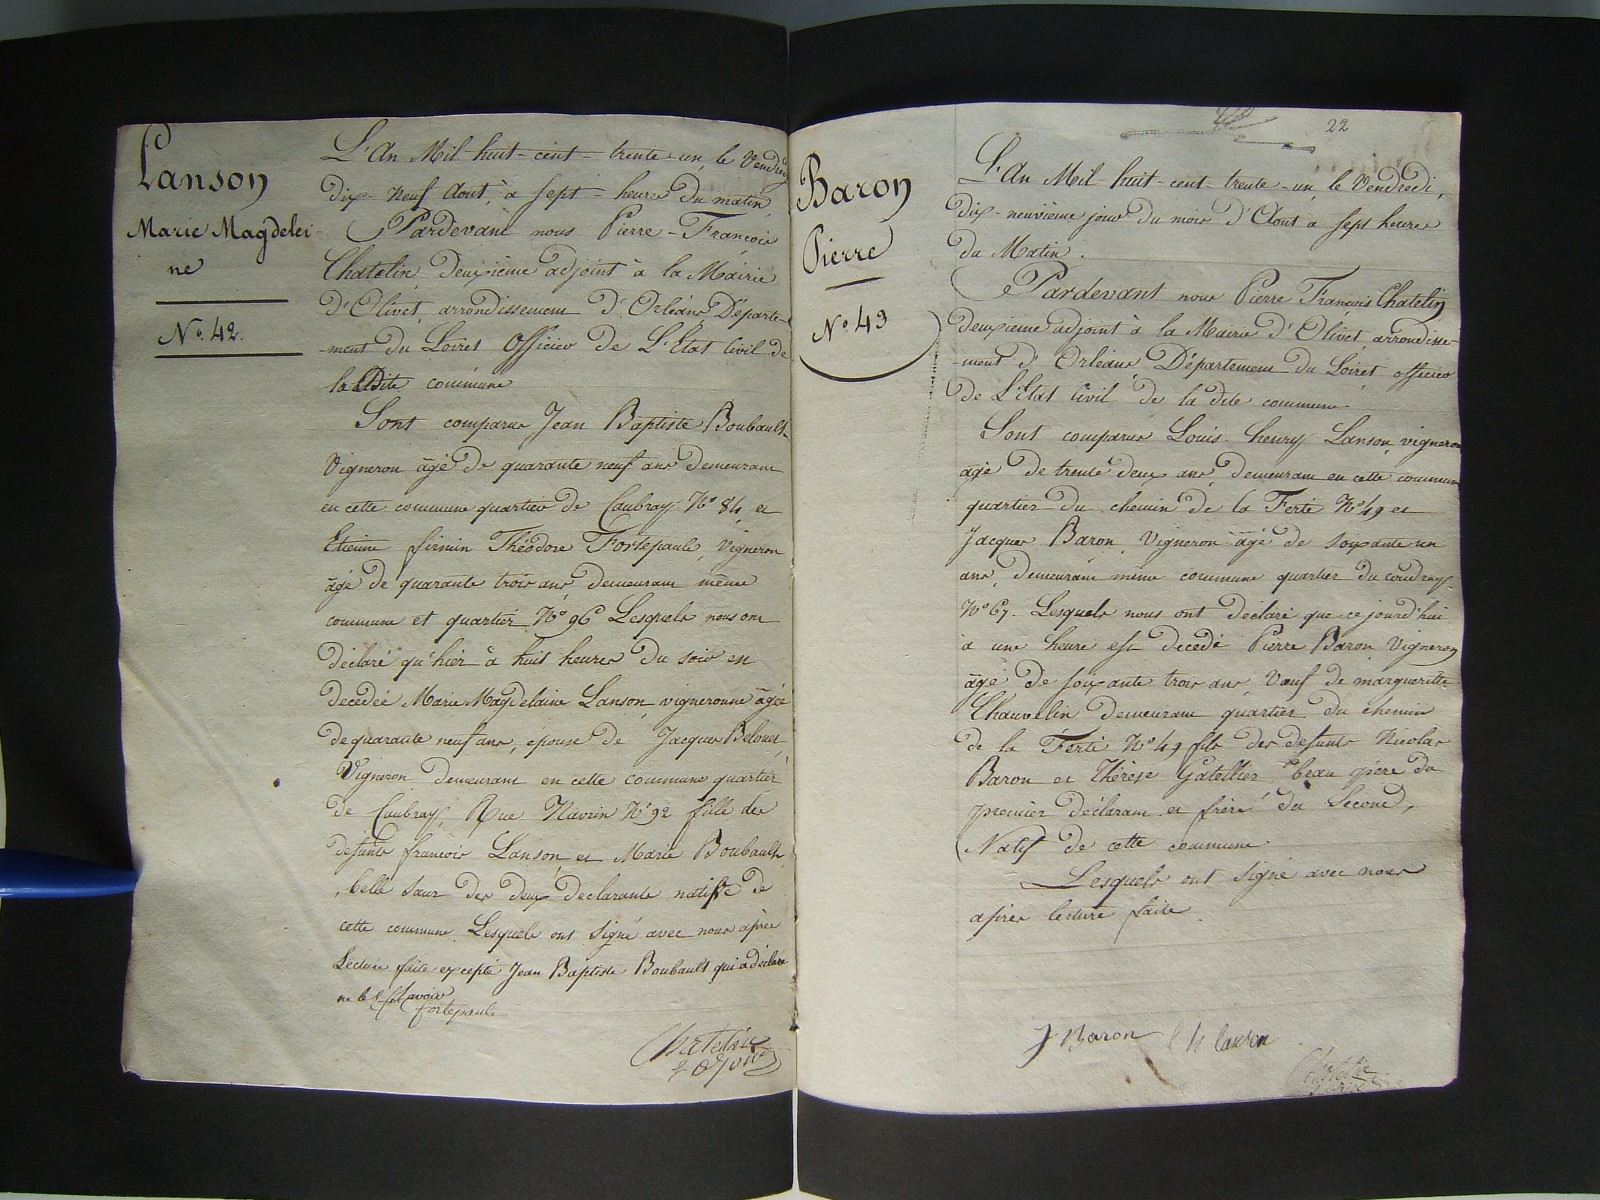 Lanson
Marie Magdelei
ne
No. 42.
L'An Mil huit-cent-trente-un, le Vendredi
dix-neuf Aout, à sept-heures du matin,
Pardevant nous Pierre-François
Chatelin Deuxième adjoint à la Mairie
d'Olivet, arrondissement d'Orléans Départe-
-ment du Loiret Officier de L'Etat Civil de
la Dite commune
Sont comparus Jean Baptiste Boubault
Vigneron âgé de quarante neuf ans demeurant
en cette commune quartier de Caubray No 84, et
Etienne firmin Théodore Fortepaule, Vigneron
âgé de quarante trois ans demeurant même
commune et quartier No 96 Lesquels nous ont
déclaré qu'hier à huit heures du soir en
décédée Marie Magdelaine Lanson, vigneronne âgée
de quarante neuf ans, epouse de Jacques Belouet,
Vigneron demeurant en cette commune quartier
de Caubray, Rue No 92 fille des
defunts françois Lanson et Marie Boubault,
belle sœur des deux déclarants native de
cette commune. Lesquels ont signé avec nous après
Lecture faite excepté Jean Baptiste Boubault qui a déclaré
ne le savoir
fortepaule
Chatelin
adjoint
22
Baron
Pierre
No 43
L'An Mil huit-cent-trente-un, le Vendredi,
dix-neuvième jour du mois d'Aout à sept heures
du Matin.
Pardevant nous Pierre François Chatelin
deuxième adjoint à la Mairie d'Olivet, arrondisse-
-ment d'Orléans Département du Loiret officier
de L'Etat Civil de la dite commune.
Sont comparus Louis henry Lanson, vigneron
âgé de trente deux ans, demeurant en cette commune
quartier du chemin de la Ferté No 49 et
Jacques Baron, Vigneron âgé de soixante un
ans, demeurant même commune quartier du coudray
No 67. Lesquels nous ont déclaré que ce jourd'hui
à une heure est décédé Pierre Baron Vigneron
âgé de soixante trois ans, Veuf de marguerite
Chauvelin demeurant quartier du chemin
de la Ferté No 49 fils des defunts Nicolas
Baron et Thérèse Gatellier beau père du
premier déclarant et frère du Second,
Natif de cette commune
Lesquels ont signé avec nous
après lecture faite.
J Baron L h lanson
Chatelin